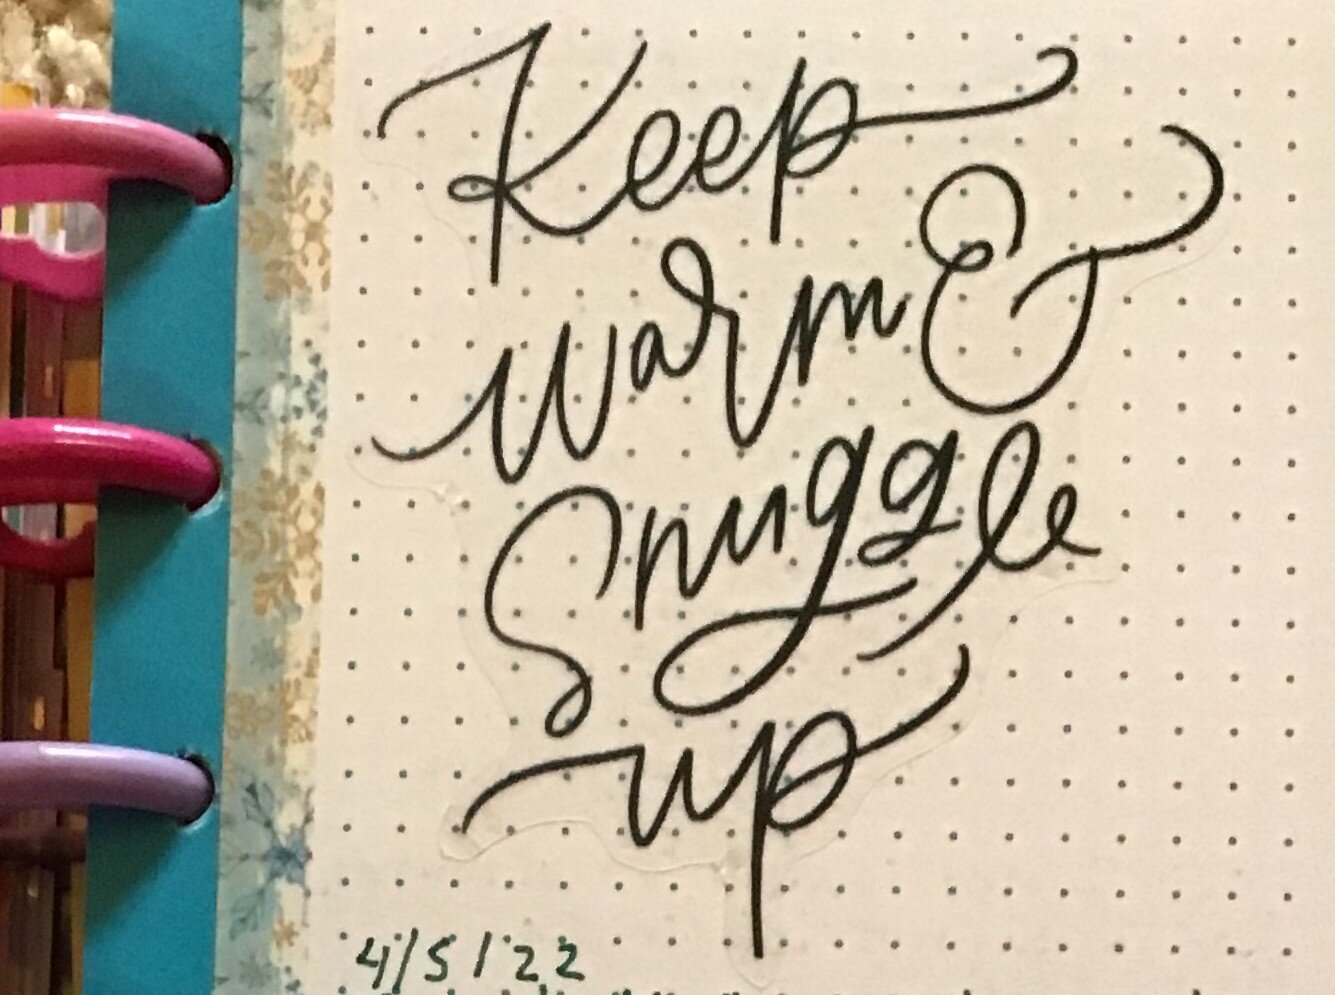 Keep
warm &
Snuggle
up
4/5/22